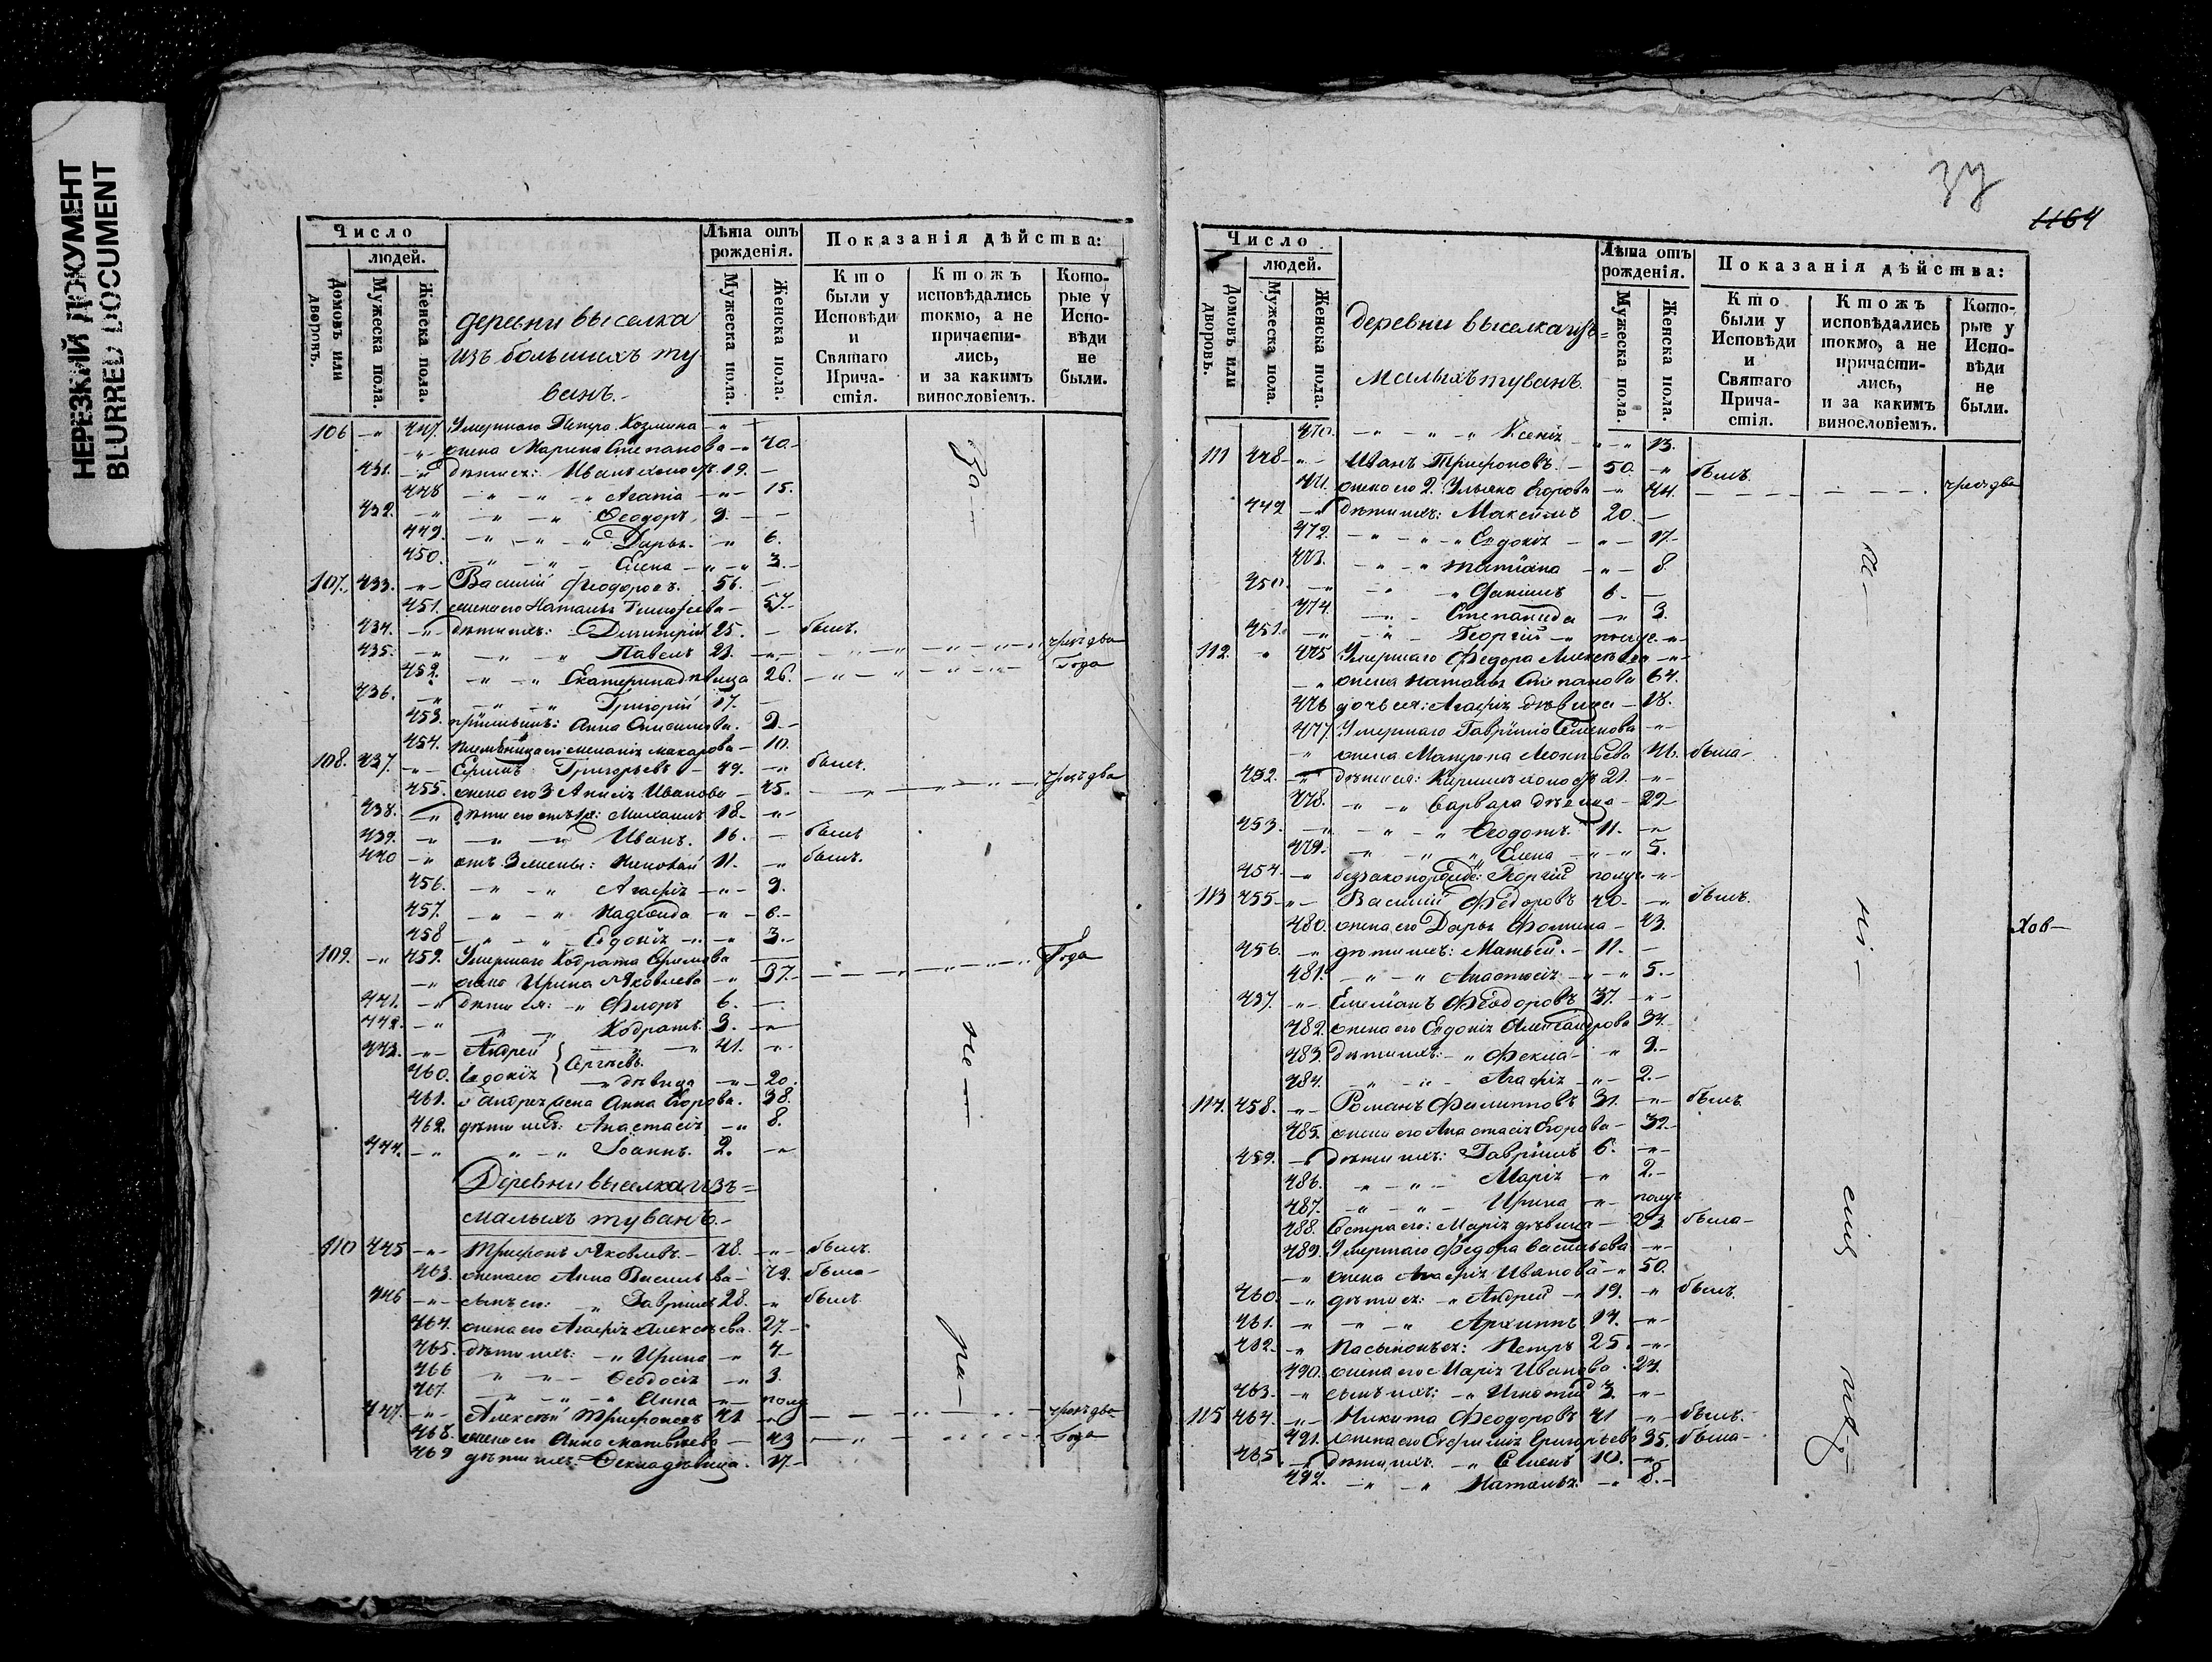 НЕРЕЗКИЙ ДОКУМЕНТ
BLURRED DOCUMENT
Число
людей.
Домовъ или дворовъ.
Мужеска пола.
Женска пола.
деревни выселка
изъ большихъ ту
ванъ.
Лѣта отъ рожденія.
Мужеска пола.
Женска пола.
Показанія дѣйства:
Кто были у Исповѣди и Святаго Прича-стія.
Ктожъ исповѣдались токмо, а не причасти-лись, и за какимъ винословіемъ.
Кото-рые у Испо-вѣди не были.
106 -"- 447. Умершаго Петра Козмина -"-
-"- жена Марина Степанова -"- 40.
431. -"- дѣти ея: Иванъ холостъ 19. -
448 -"- -"- Агапія -"- 15.
432. -"- -"- Ѳеодоръ 9. -
449. -"- -"- Дарья -"- 6.
450. -"- -"- Елена -"- 3.
107. 433. -"- Василій Феодоровъ. 56. -
451. жена его Наталья Тимофеева - 57.
434. -"- дѣти ихъ: Димитрій 25. - былъ.
435. -"- -"- Павелъ 23. -"- чрезъ два
452. -"- -"- Екатерина дѣвица 26. года
436. -"- -"- Григорій 17. -
453. Анна 9.
454. племянница его Меланія Макарова - 10.
108. 437. -"- Ефимъ Григорьевъ - 49. -"- былъ.
455. жена его 3 Анисія Иванова - 45. чрезъ два
438. -"- Михаилъ 18. -"-
439. -"- -"- Иванъ. 16. - былъ
440 -"- отъ 3 жены: Николай 11. -"- былъ.
456. -"- -"- Агафія -"- 9.
457. -"- -"- Надежда -"- 6.
458 -"- -"- Евдокія -"- 3.
109. -"- 459. Умершаго Кодрата Ефимова
-"- жена Ирина Яковлева -"- 37. года
441. -"- дѣти ея: -"- Флоръ 6. -
442. -"- -"- Кодратъ 3. -"-
443. -"- Андрей } Сергѣевъ 41. -"-
460. Евдокія } -"- дѣвица -"- 20.
461. у Андрея жена Анна Егорова. 38.
462. дѣти ихъ: Анастасія -"- 8.
444. -"- -"- Іоаннъ. 2. -"-
Деревни выселка изъ =
малыхъ туванъ.
110 445 -"- Трифонъ Яковлевъ - 78. -"- былъ.
463. жена его Анна Васильева - 79. была
446 -"- сынъ ея: -"- Гавріилъ 28. -"- былъ
464. жена его Агафія Алексѣева. 27.
465. дѣти ихъ: -"- Ирина -"- 4
466 -"- -"- Ѳеодосія -"- 3.
467. -"- -"- Анна -"- полу
447. -"- Алексѣй Трифоновъ 41. -"- чрезъ два
468. жена его Анна Матвѣева - 43 года
469 дѣти ихъ: Ѳекла дѣвица. 17.
За - не - ра -
37
1164
Число
людей.
Домовъ или дворовъ.
Мужеска пола.
Женска пола.
деревни выселка изъ =
малыхъ туванъ
Лѣта отъ рожденія.
Мужеска пола.
Женска пола.
Показанія дѣйства:
Кто были у Исповѣди и Святаго Прича-стія.
Ктожъ исповѣдались токмо, а не причасти-лись, и за какимъ винословіемъ.
Кото-рые у Испо-вѣди не были.
470. -"- -"- Ксенія -"- 13.
111 448 -"- Иванъ Трифоновъ - 50. -"- былъ.
471. жена его 2. Ульяна Егорова -"- 44. чрезъ два
449 -"- дѣти ихъ: Максимъ 20. -
472. -"- -"- Евдокія - -"- 17.
473. -"- -"- Татіана -"- 8
450. -"- -"- Даніилъ 6. -
474. -"- Степанида -"- 3.
451. -"- -"- Георгій -"- полуг. -"-
112. -"- 475 Умершаго Федора Алексѣева -"-
-"- жена Наталья Степанова 64.
476 дочь ея: Агафія дѣвица - 18.
477 Умершаго Гавріила Семенова -"-
-"- жена Матрона Леонтьева 46. была
452. -"- дѣти ея: Кириллъ холостъ 21. -"-
478. -"- -"- Варвара дѣвица - 22
453. -"- -"- Ѳеодотъ 11. -"-
479. -"- -"- Елена -"- 5.
454. -"- Георгій полуг. -"-
113 455 -"- Василій Федоровъ 40. -"- былъ.
480. жена его Дарья Фомина - 43.
456. -"- дѣти ихъ: Матвѣй. - 11. -
481. -"- -"- Анастасія -"- 5.
457. -"- Емеліанъ Феодоровъ 37. -"-
482. жена его Евдокія Александрова 34.
483. дѣти ихъ: -"- Фекла - -"- 9.
484. -"- -"- Агафія -"- 2.
114. 458. -"- Романъ Филипповъ 31. -"- былъ
485. жена его Анастасія Егорова - 32.
459. -"- дѣти ихъ: Гавріилъ 6. -"-
486. -"- -"- Марія -"- 2.
487. -"- -"- Ирина -"- полуг
488. сестра его: Марія дѣвица - 23 была
489. Умершаго Федора Васильева -"-
-"- жена Агафія Иванова -"- 50.
460. -"- дѣти ея: -"- Андрей -"- 19. -"- былъ.
461. -"- -"- Архиппъ. 14. -"-
462. -"- пасынокъ ея: Петръ 25. -"-
490. жена его Марія Иванова. 24.
463. -"- сынъ ихъ: -"- Игнатій 3. -"-
115 464. -"- Никита Феодоровъ 41 -"- былъ.
491. жена его Евфимія Григорьева 35. была
465 -"- дѣти ихъ. -"- 10. -"-
492. -"- -"- Наталья. -"- 8.
Хов